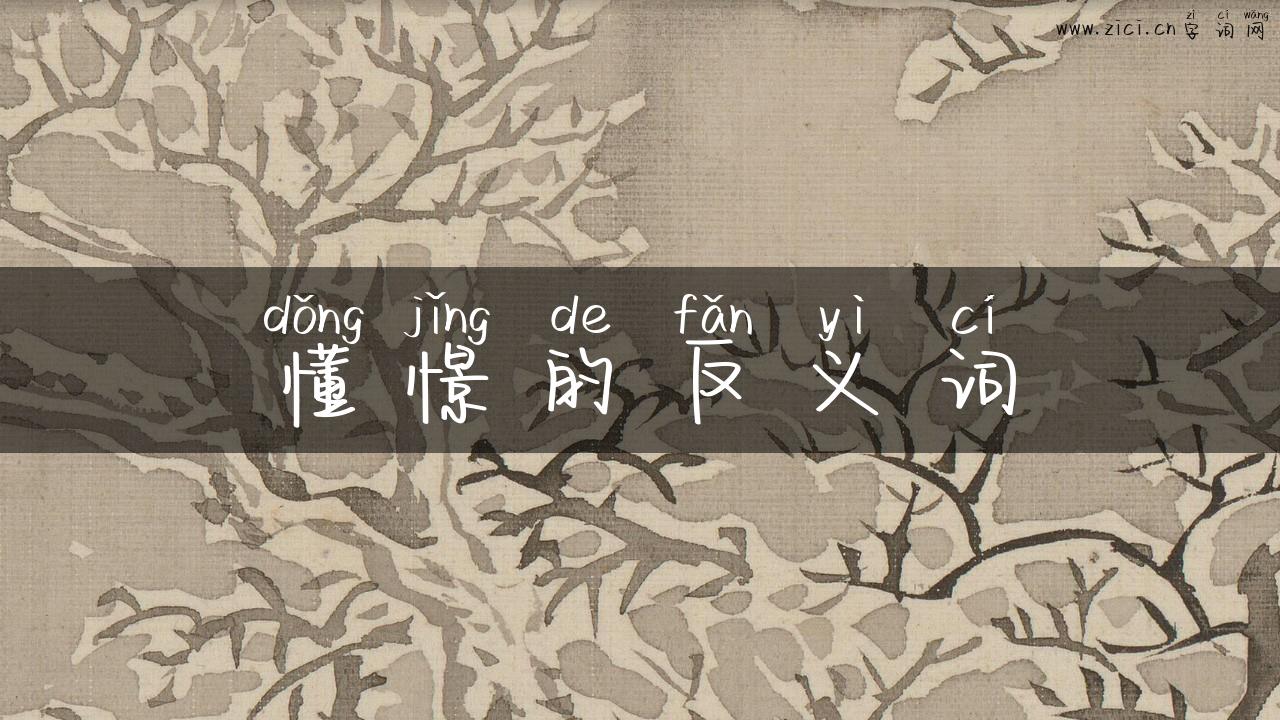 zì cí wǎng
www.zici.cn 字词网
dǒng jǐng de fǎn yì cí
懂憬的反义词